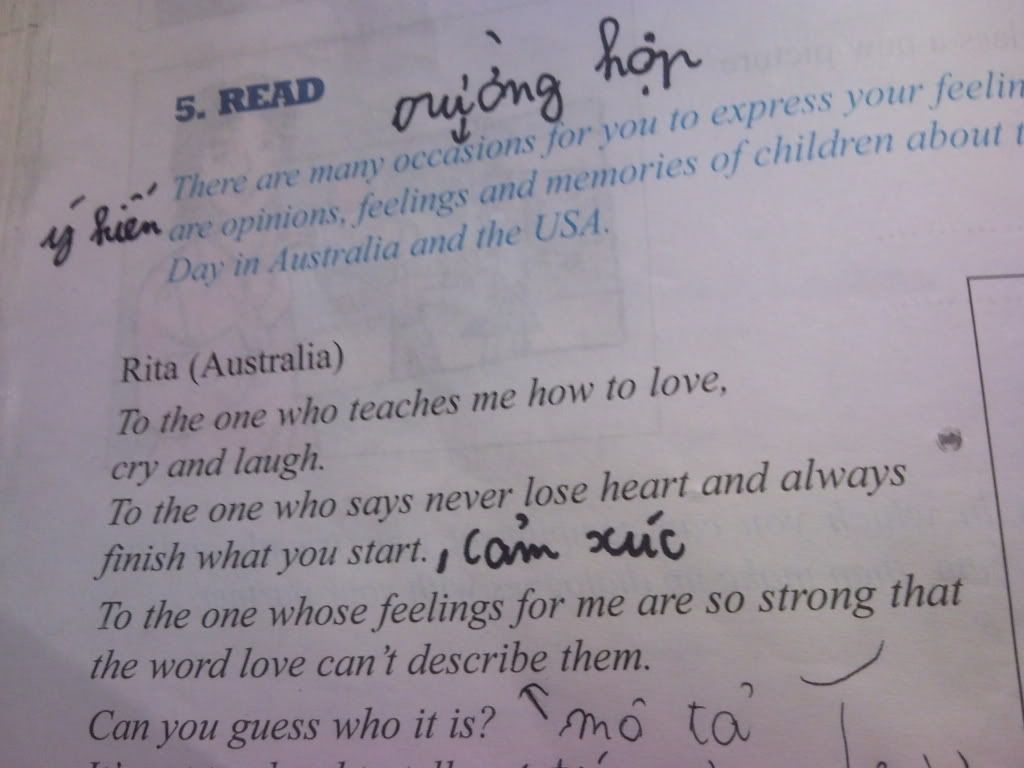 5. READ
hợp
There are many occasions for you to express your feelin
ý kiến
are opinions, feelings and memories of children about t
Day in Australia and the USA.
Rita (Australia)
To the one who teaches me how to love,
cry and laugh.
To the one who says never lose heart and always
finish what you start.
cảm xúc
To the one whose feelings for me are so strong that
the word love can't describe them.
Can you guess who it is?
mô tả